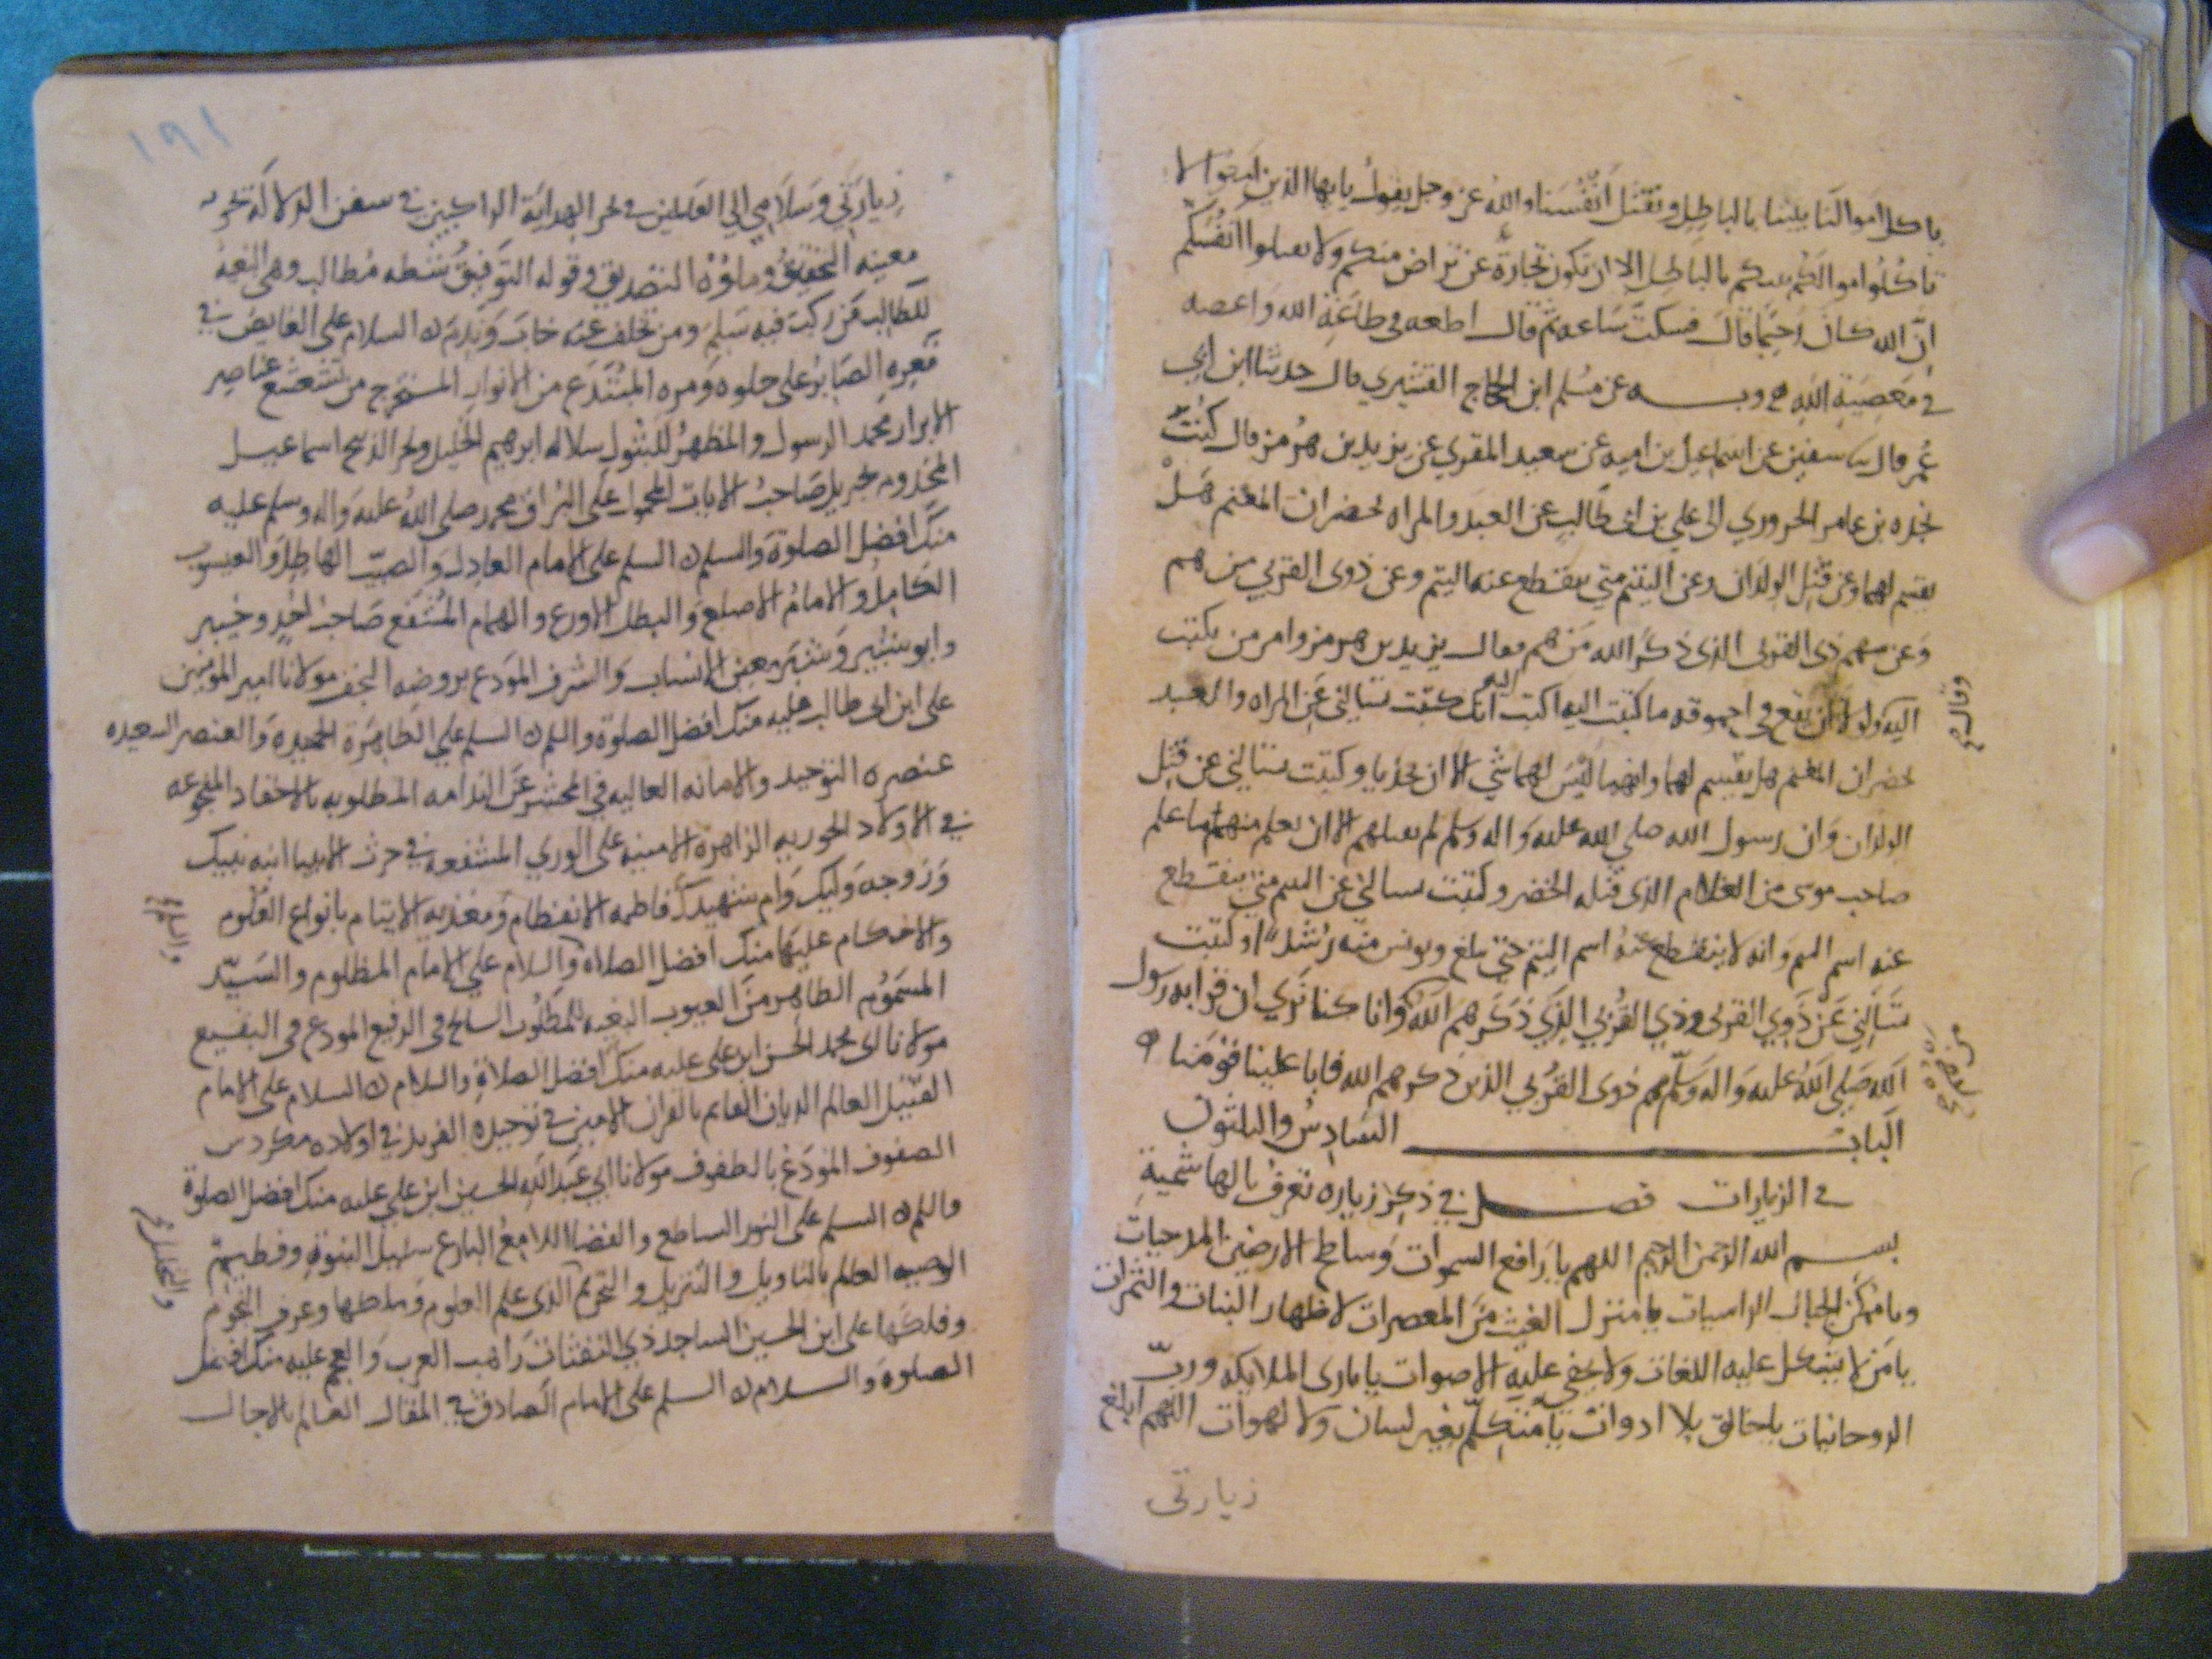 ياكل اموالنا بيننا بالباطل ونقتل انفسنا والله عز وجل يقول يايها الذين امنوا لا
تاكلوا اموالكم بينكم بالباطل الا ان تكون تجارة عن تراض منكم ولا تقتلوا انفسكم
ان الله كان رحيما قال فسكت ساعه ثم قال اطعه في طاعة الله واعصه
في معصية الله وبه عن مسلم ابن الحجاج القشيري قال حدثنا ابن ابي
عمر قال سفين عن اسماعيل بن اميه عن سعيد المقري عن يزيد بن هرمز قال كتب
نجده بن عامر الحروري الى علي بن ابي طالب عن العبد والمراه يحضران المغنم هل
يقسم لهما وعن قتل الولدان وعن اليتيم متى ينقطع عنه اليتم وعن ذوى القربي من هم
وعن سهم ذى القربى الذى ذكر الله من هم فقال يزيد بن هرمز وامر من يكتب
اليه ولولا ان يقع في احموقه ما كتبت اليه اكتب اليه انك كتبت تسالني عن المراه والعبد
يحضران المغنم هل يقسم لهما وانهما ليس لهما شي الا ان يحذيا وكتبت تسالني عن قتل
الولدان وان رسول الله صلي الله عليه واله وسلم لم يقتلهم الا ان تعلم منهم ما علم
صاحب موسى من الغلام الذى قتله الخضر وكتبت تسالني عن اليتيم متى ينقطع
عنه اسم اليتم وانه لا ينقطع عنه اسم اليتم حتى يبلغ ويونس منه رشدا وكتبت
تسالني عن ذوي القربى وذي القربي الذي ذكرهم الله وانا كنا نري ان قرابه رسول
الله صلي الله عليه واله وسلم هم ذوى القربي الذين ذكرهم الله فابا علينا قومنا
الباب السادس والثلثون
في الزيارات فصل في ذكر زياره تعرف بالهاشمية
بسم الله الرحمن الرحيم اللهم يا رافع السموات وساطح الارضين المدحيات
ويا ممكن الجبال الراسيات يا منزل الغيث من المعصرات لاظهار النبات والثمرات
يا من لا يشكل عليه اللغات ولا يخفي عليه الاصوات يا بارى الملايكه ورب
الروحانيات يا خالق بلا ادوات يا متكلم بغير لسان ولا لهوات اللهم ابلغ
زيارتى
١٩١
زيارتي وسلامي الي العالمين في بحر الهداية الراكبين في سفن الدلالة
معينه التحقيق وماؤه التصديق وقوله التوفيق شطه مطالب وهي
للطالب من ركب فيه سلم ومن تخلف عنه خاب وندم السلام على الغايص في
قعره الصابر على حلوه ومره المبتدع من الانوار المستخرج من تشعشع عناصر
الابرار محمد الرسول والمظهر للبتول سلاله ابرهيم الخليل ونجر الذبيح اسماعيل
المخدوم بجبريل صاحب الايات المحمول على البراق محمد صلى الله عليه واله وسلم عليه
منك افضل الصلوة والسلم السلم على الامام العادل والصيب الهاطل واليعسوب
الكامل والامام الاصلع والبطل الاورع والهمام المشفع صاحب احد وخيبر
وابو شبير وشبر الانساب والشرف المودع بروضه النجف مولانا امير المومنين
على ابن ابى طالب عليه منك افضل الصلوة والسلم السلم علي الطاهرة الحميدة والعنصر السعيده
عنصره التوحيد والامانه العاليه في المحشر عن الندامه المطلوبه بالاحقاد المفجوعه
في الاولاد الحوريه الزاهرة الامينه على الوري المشفعه في حرث الانبيا ابنه نبيك
وزوجه وليك وام شهيدك فاطمه الانفطام ومغذيه الايتام بانواع العلوم
والاحكام عليها منك افضل الصلاه والسلام على الامام المظلوم والسيد
المسموم الطاهر من العيوب البغيه للمطلوب في الرفيع المودع في البقيع
مولانا ابى محمد الحسن ابن على عليه منك افضل الصلاة والسلام السلام على الامام
القتيل العالم الديان العالم بالقران الامين في توحيده الفريد في اولاده مكردس
الصفوف المودع بالطفوف مولانا ابي عبد الله الحسين ابن علي عليه منك افضل الصلوة
والسلم السلم على النور الساطع والفضا اللامع البارع سليل النبوة وفطيم
الوصيه العالم بالتاويل والتنزيل والتحريم الذى علم العلوم وعرف النجوم
وفلكها على ابن الحسين الساجد ذي الثفنات راهب العرب والعجم عليه منك افضل
الصلوة والسلام السلم على الامام الصادق في المقال العالم بالاجال
والسلام
والتحليل